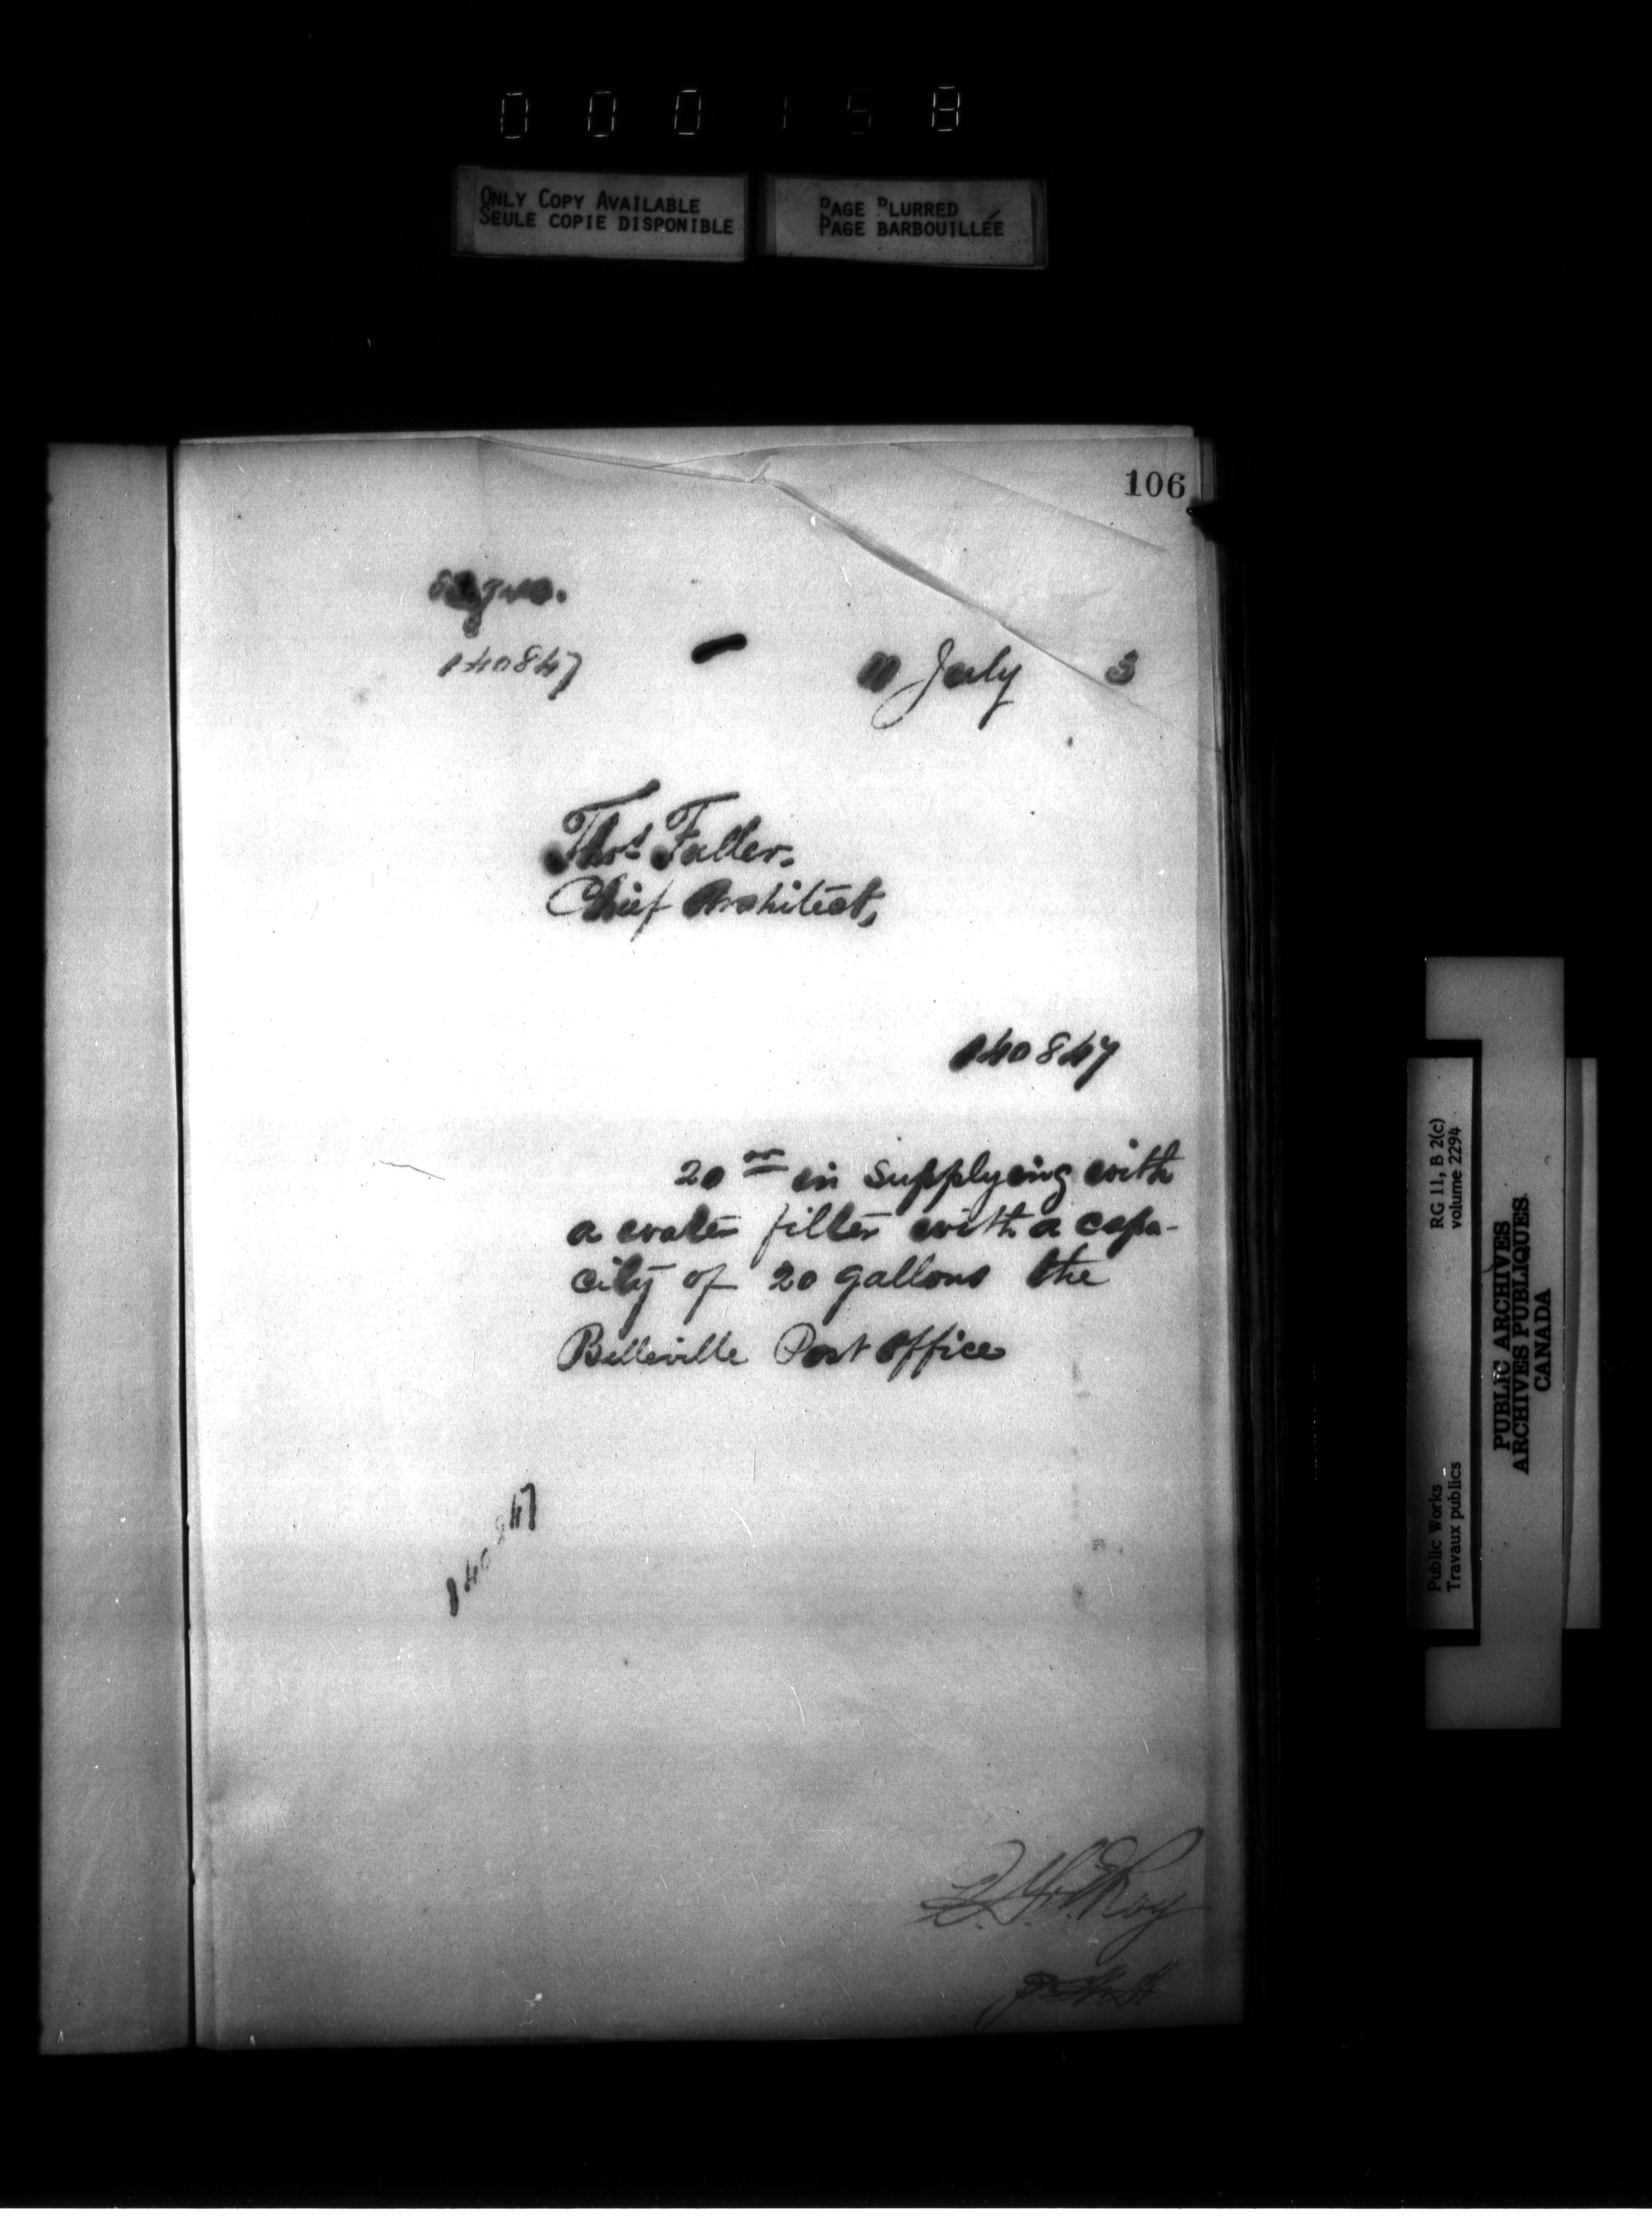 000158
ONLY COPY AVAILABLE
SEULE COPIE DISPONIBLE
PAGE BLURRED
PAGE BARBOUILLÉE
106
140847
11 July 3
Thos. Fuller,
Chief Architect,
140847
20 00 in supplying with
a water filter with a capa-
city of 20 gallons the
Belleville Post Office
140847
RG 11, B 2(c)
volume 2294
Public Works
Travaux publics
PUBLIC ARCHIVES
ARCHIVES PUBLIQUES
CANADA